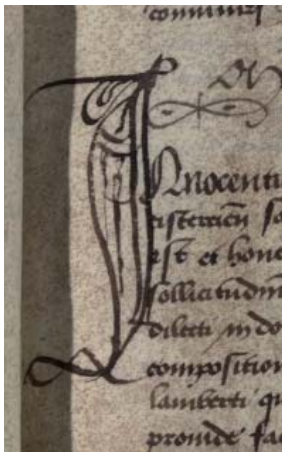 communes
Innocenti
cistercien̄ so
est et hone
sollicitudin
dilecti in do
composition
lamberti qu
proinde fac